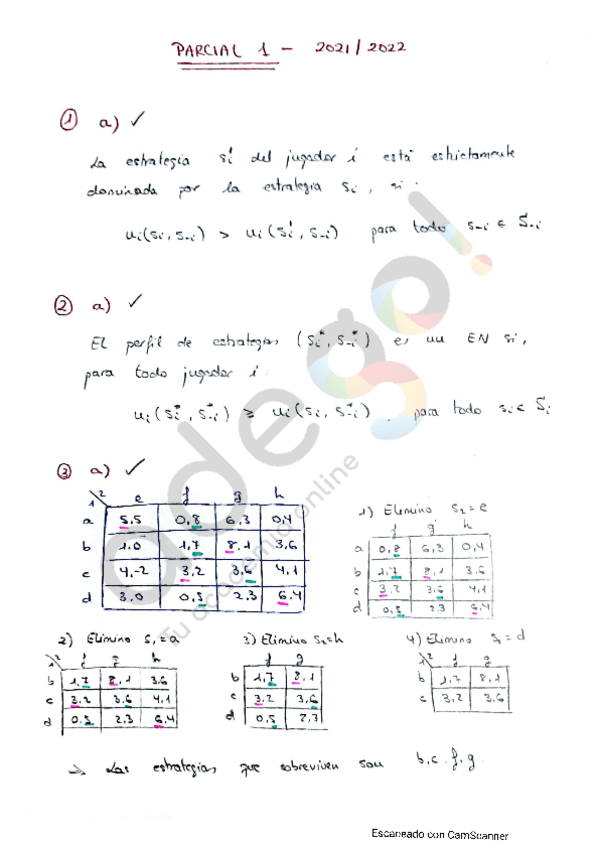 PARCIAL 1 - 2021/2022
① a) ✓
La estrategia si' del jugador i está estrictamente
dominada por la estrategia si, si:
ui(si, s-i) > ui(si', s-i) para todo s-i ∈ S-i
② a) ✓
El perfil de estrategias (si*, s-i*) es un EN si,
para todo jugador i:
ui(si*, s-i*) ≥ ui(si, s-i*), para todo si ∈ Si
③ a) ✓
1\2 e f g h
a 5,5 0,8 6,3 0,4
b 1,0 1,7 8,1 3,6
c 4,-2 3,2 3,6 4,1
d 3,0 0,5 2,3 6,4
1) Elimino s2=e
f g h
a 0,8 6,3 0,4
b 1,7 8,1 3,6
c 3,2 3,6 4,1
d 0,5 2,3 6,4
2) Elimino s1=a
1\2 f g h
b 1,7 8,1 3,6
c 3,2 3,6 4,1
d 0,5 2,3 6,4
3) Elimino s2=h
f g
b 1,7 8,1
c 3,2 3,6
d 0,5 2,3
4) Elimino s1=d
1\2 f g
b 1,7 8,1
c 3,2 3,6
→ Las estrategias que sobreviven son b, c, f, g.
adego!
Tu academia online
Escaneado con CamScanner